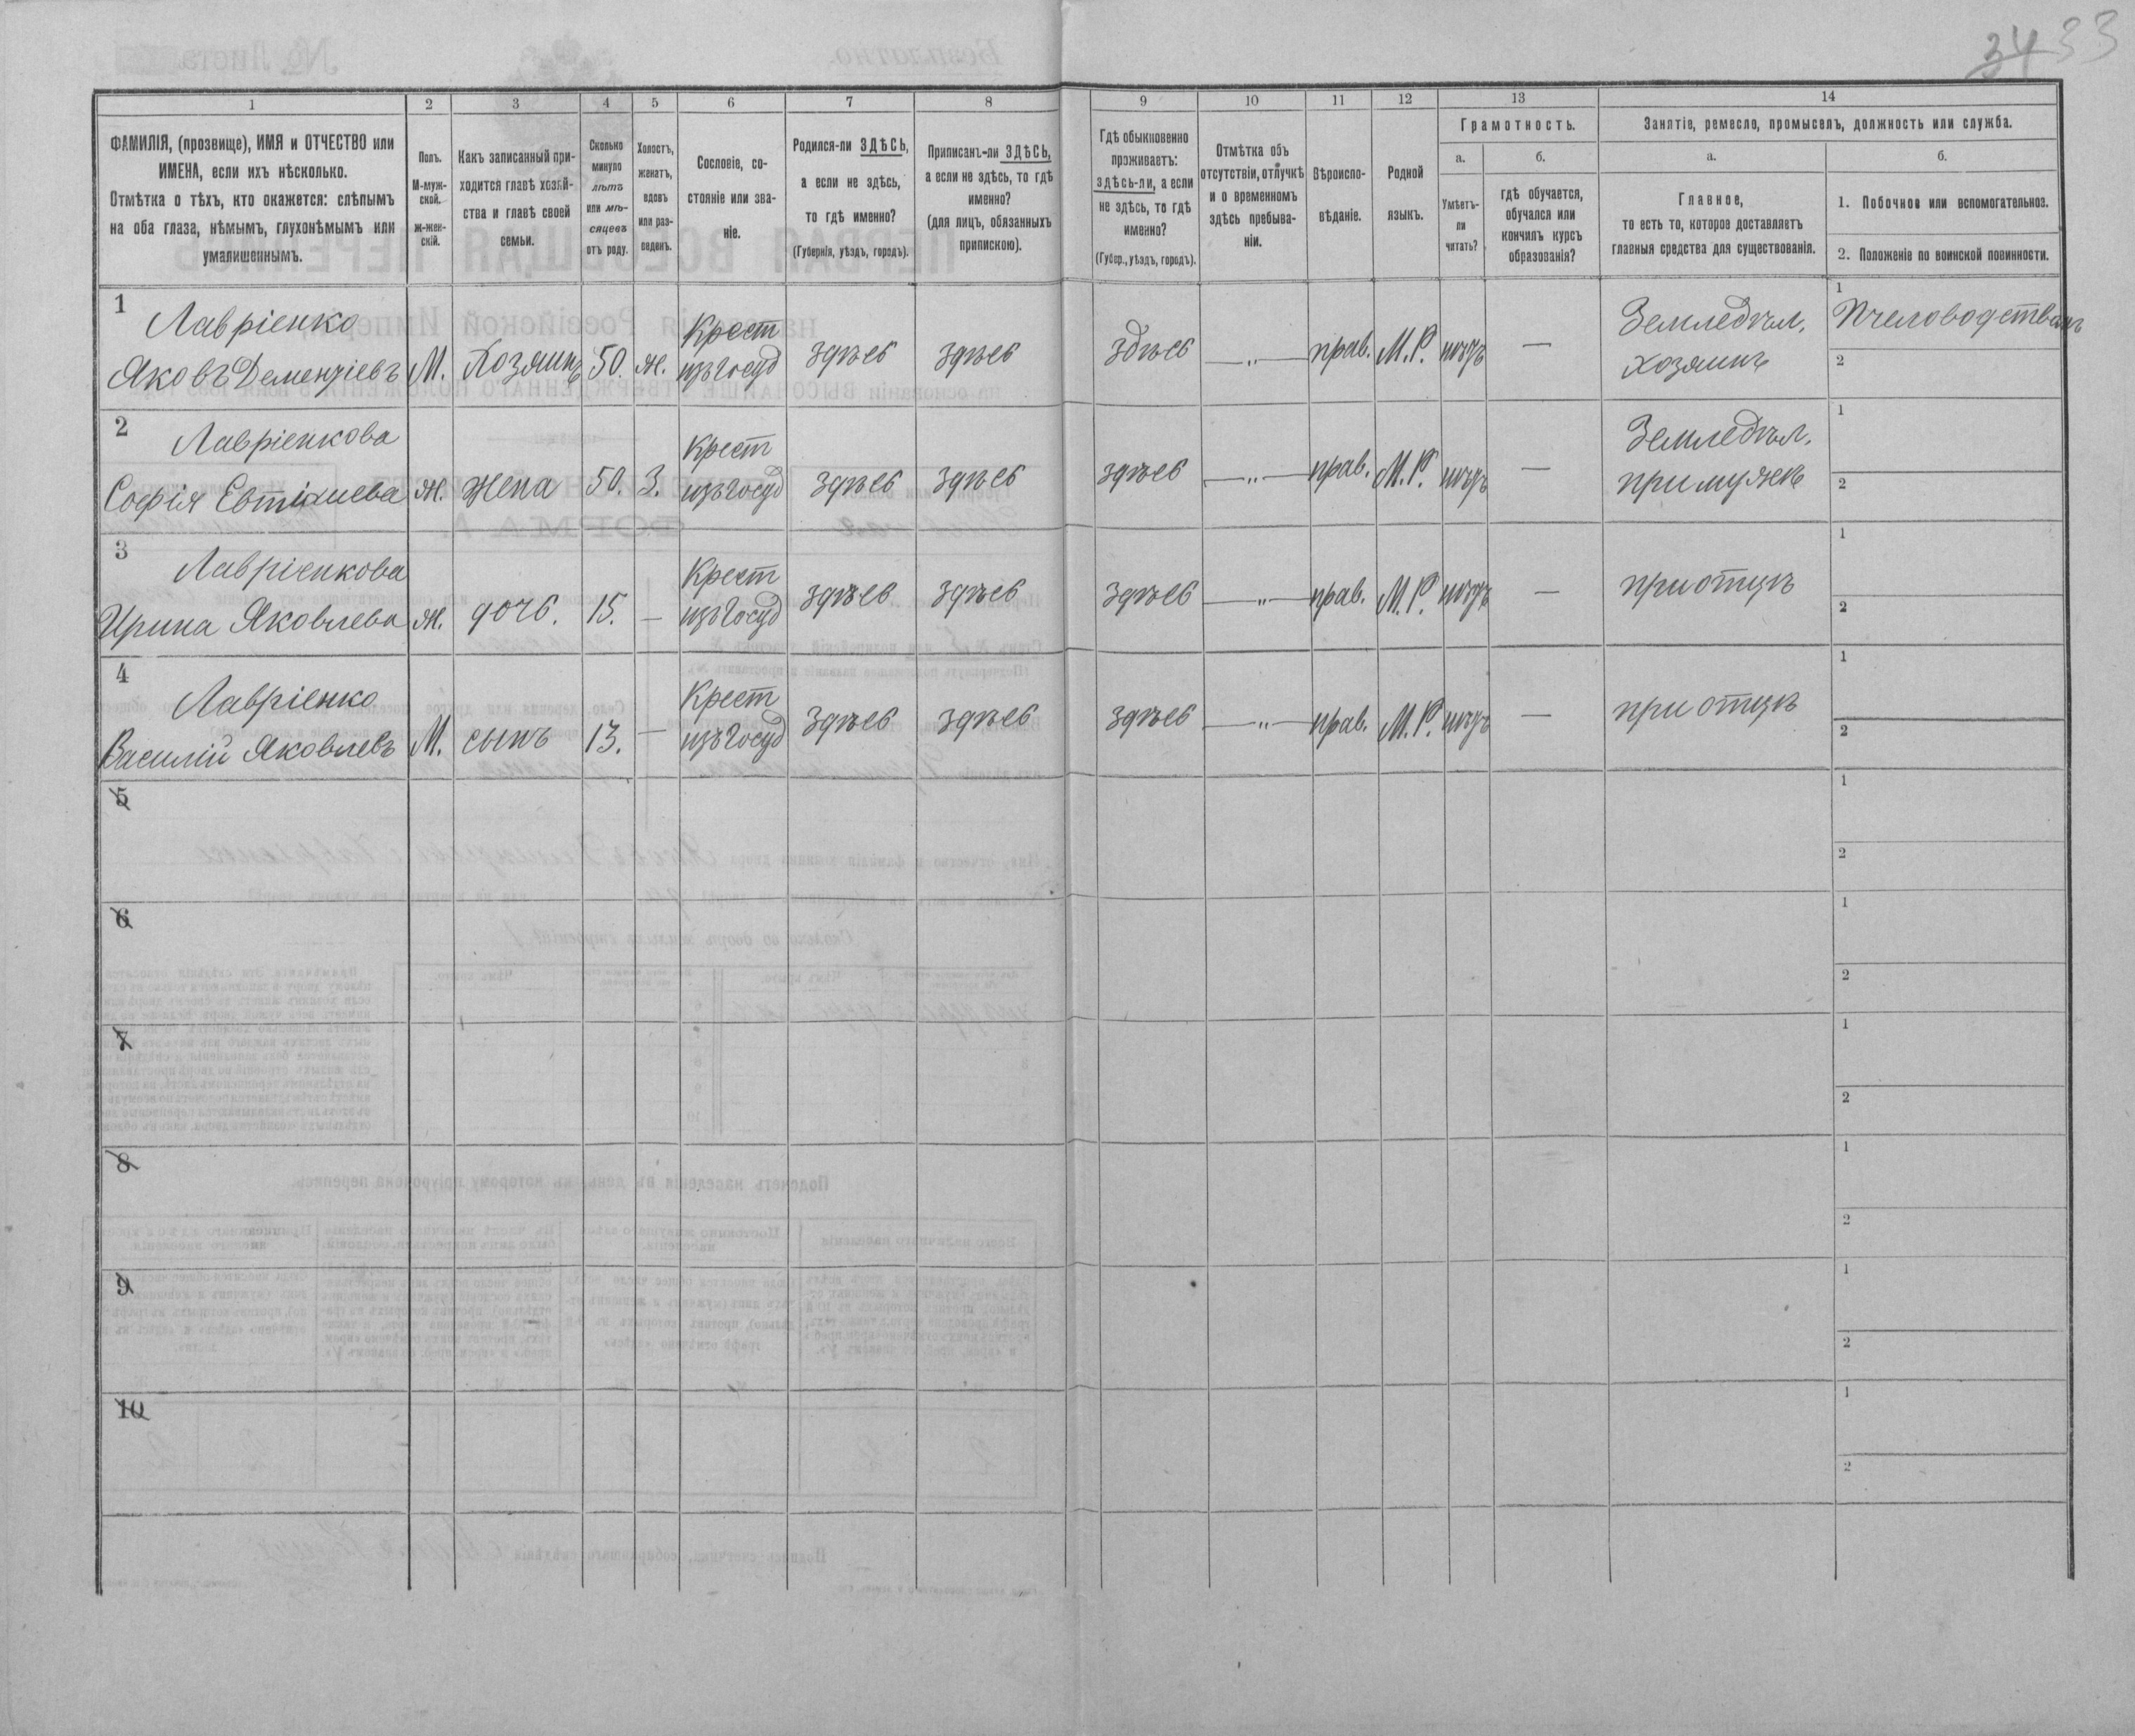 34 33
1 2 3 4 5 6 7 8 9 10 11 12 13 14
ФАМИЛІЯ, (прозвище), ИМЯ и ОТЧЕСТВО или
ИМЕНА, если ихъ нѣсколько.
Отмѣтка о тѣхъ, кто окажется: слѣпымъ
на оба глаза, нѣмымъ, глухонѣмымъ или
умалишеннымъ.
Полъ.
М-муж-
ской.
ж-жен-
скій.
Какъ записанный при-
ходится главѣ хозяй-
ства и главѣ своей
семьи.
Сколько
минуло
лѣтъ
или мѣ-
сяцевъ
отъ роду.
Холостъ,
женатъ,
вдовъ
или раз-
веденъ.
Сословіе, со-
стояніе или зва-
ніе.
Родился-ли ЗДѢСЬ,
а если не здѣсь,
то гдѣ именно?
(Губернія, уѣздъ, городъ).
Приписанъ-ли ЗДѢСЬ,
а если не здѣсь, то гдѣ
именно?
(для лицъ, обязанныхъ
припискою).
Гдѣ обыкновенно
проживаетъ:
здѣсь-ли, а если
не здѣсь, то гдѣ
именно?
(Губер., уѣздъ, городъ).
Отмѣтка объ
отсутствіи, отлучкѣ
и о временномъ
здѣсь пребыва-
ніи.
Вѣроиспо-
вѣданіе.
Родной
языкъ.
Грамотность.
а. б.
Умѣетъ-
ли
читать?
гдѣ обучается,
обучался или
кончилъ курсъ
образованія?
Занятіе, ремесло, промыселъ, должность или служба.
а. б.
Главное,
то есть то, которое доставляетъ
главныя средства для существованія.
1. Побочное или вспомогательное.
2. Положеніе по воинской повинности.
1 Лавріенко Крест Земледѣл. 1 Пчеловодствомъ
Яковъ Дементіевъ М. Хозяинъ 50. ж. изъ госуд здѣсь здѣсь здѣсь —„— прав. М.Р. нѣтъ — хозяинъ 2
2 Лавріенкова Крест Земледѣл. 1
Софія Евтихиева ж. жена 50. З. изъ госуд здѣсь здѣсь здѣсь —„— прав. М.Р. нѣтъ — при мужѣ 2
3 Лавріенкова Крест 1
Ирина Яковлева ж. дочь. 15. — изъ госуд здѣсь здѣсь здѣсь —„— прав. М.Р. нѣтъ — при отцѣ 2
4 Лавріенко Крест 1
Василій Яковлевъ М. сынъ 13. — изъ госуд здѣсь здѣсь здѣсь —„— прав. М.Р. нѣтъ — при отцѣ 2
5 1
2
6 1
2
7 1
2
8 1
2
9 1
2
10 1
2